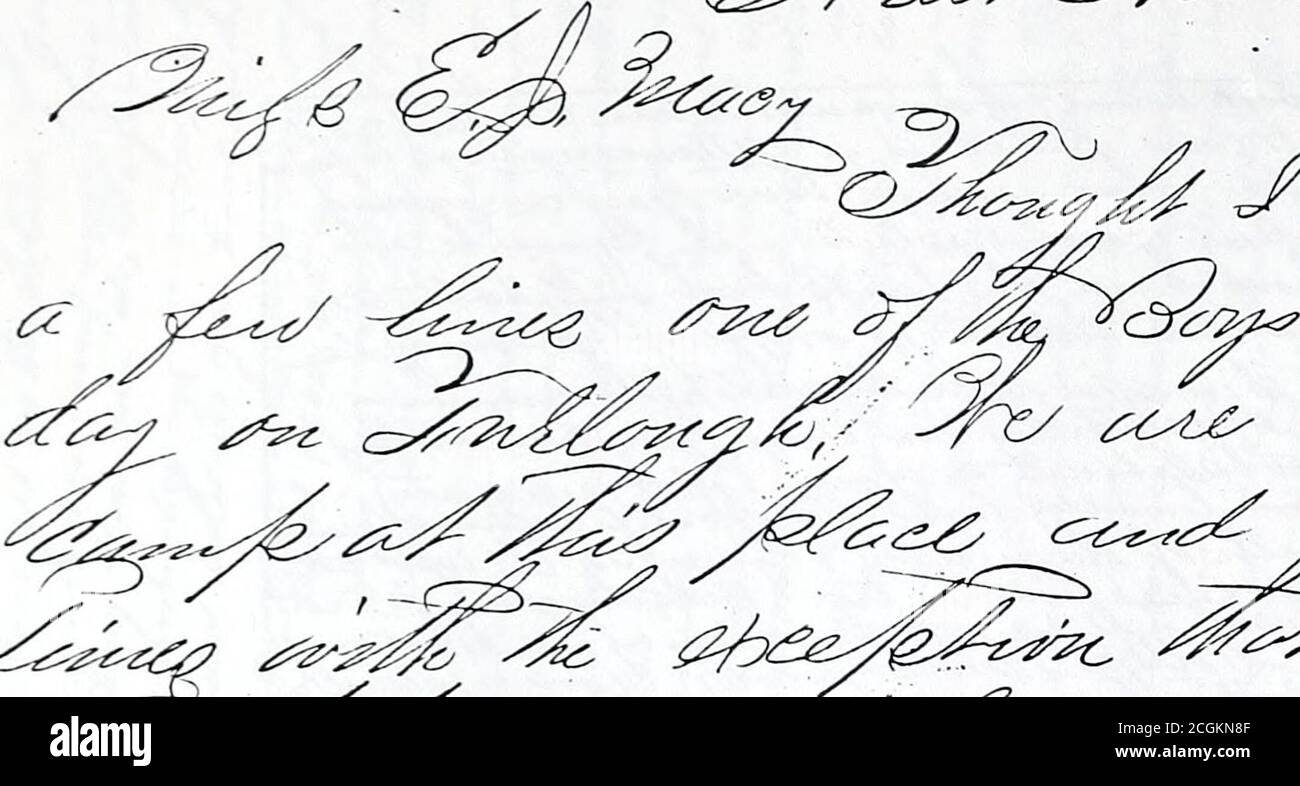 Miss E. J. Macy
Thought I
a few lines one of the Boys
day on Furlough. We are
camp at this place and
times with the exception that
alamy
Image ID: 2CGKN8F
www.alamy.com